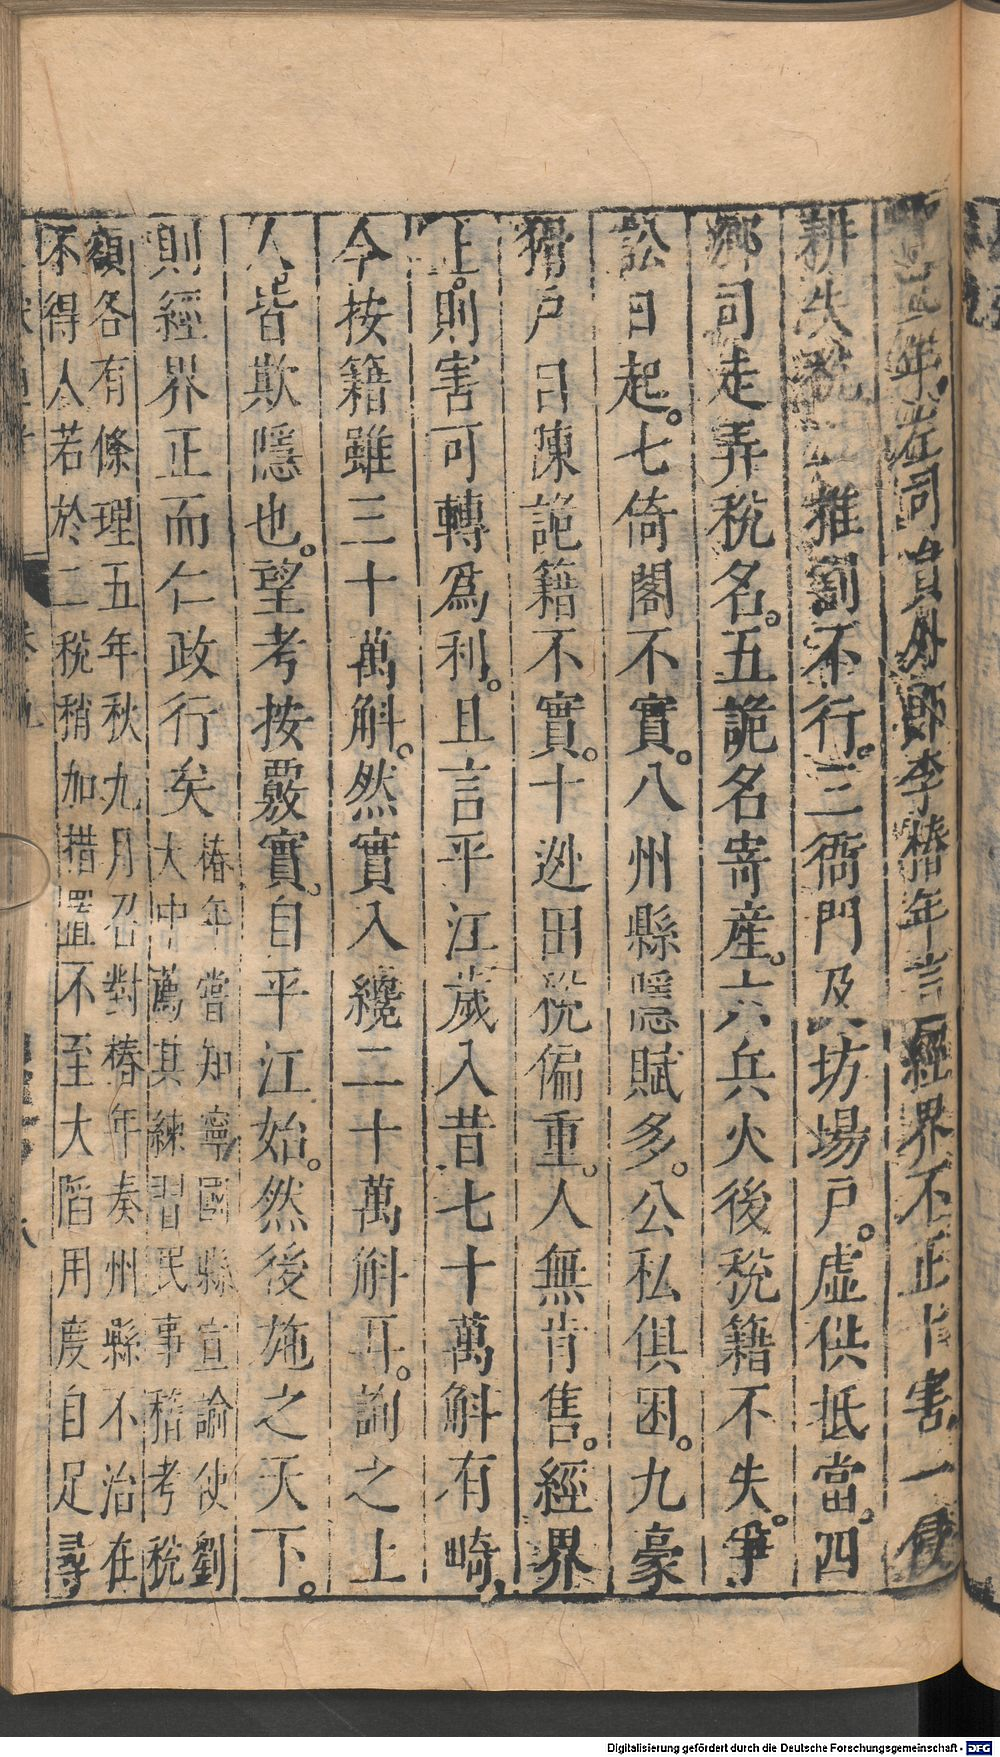 年左司員外郎李椿年言經界不正十害一侵
耕失稅二推割不行。三衙門及坊場戶。虛供抵當。四
鄉司走弄稅名。五詭名寄產。六兵火後稅籍不失。爭
訟日起。七倚閣不實。八州縣隱賦多。公私俱困。九豪
猾戶自陳詭籍不實。十逃田稅偏重。人無肯售。經界
正。則害可轉爲利。且言平江歲入昔七十萬斛有畸
今按籍雖三十萬斛。然實入纔二十萬斛耳。詢之上
人皆欺隱也。望考按覈實。自平江始。然後施之天下。
則經界正而仁政行矣
椿年嘗知寧國縣宣諭使劉
大中薦其練習民事稽考稅
額各有條理五年秋九月召對椿年奏州縣不治在
不得人若於二稅稍加措置不至大陷用度自足尋
Digitalisierung gefördert durch die Deutsche Forschungsgemeinschaft - DFG